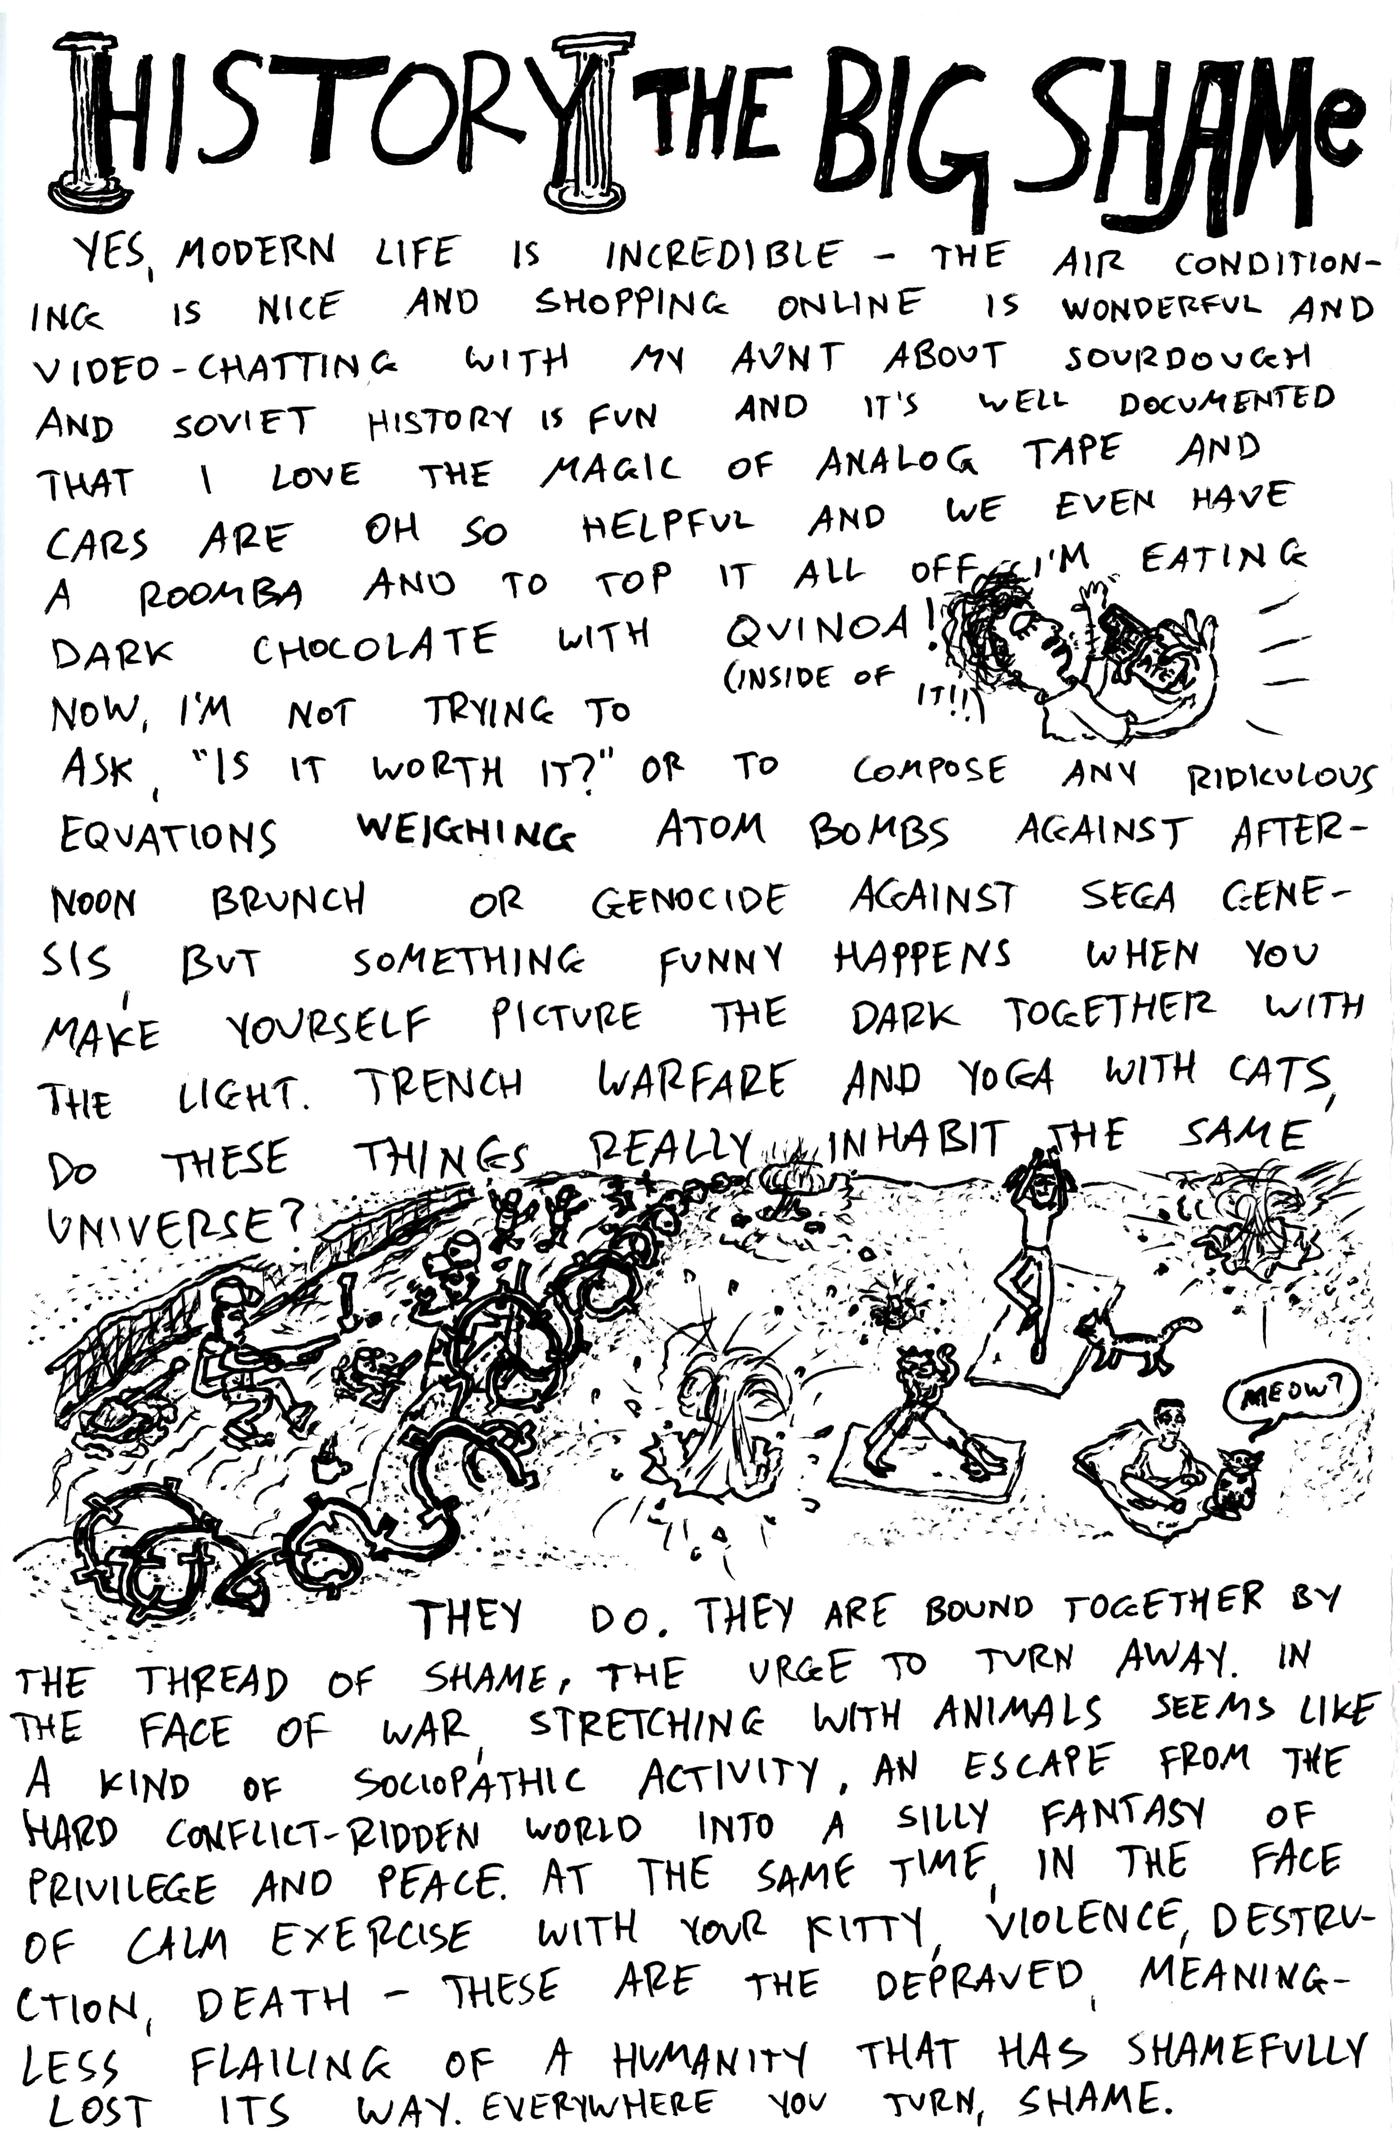 HISTORY THE BIG SHAMe
YES, MODERN LIFE IS INCREDIBLE - THE AIR CONDITION-
ING IS NICE AND SHOPPING ONLINE IS WONDERFUL AND
VIDEO-CHATTING WITH MY AUNT ABOUT SOURDOUGH
AND SOVIET HISTORY IS FUN AND IT'S WELL DOCUMENTED
THAT I LOVE THE MAGIC OF ANALOG TAPE AND
CARS ARE OH SO HELPFUL AND WE EVEN HAVE
A ROOMBA AND TO TOP IT ALL OFF I'M EATING
DARK CHOCOLATE WITH QUINOA!
(INSIDE OF IT!!)
NOW, I'M NOT TRYING TO
ASK, "IS IT WORTH IT?" OR TO COMPOSE ANY RIDICULOUS
EQUATIONS WEIGHING ATOM BOMBS AGAINST AFTER-
NOON BRUNCH OR GENOCIDE AGAINST SEGA GENE-
SIS, BUT SOMETHING FUNNY HAPPENS WHEN YOU
MAKE YOURSELF PICTURE THE DARK TOGETHER WITH
THE LIGHT. TRENCH WARFARE AND YOGA WITH CATS,
DO THESE THINGS REALLY INHABIT THE SAME
UNIVERSE?
MEOW?
THEY DO. THEY ARE BOUND TOGETHER BY
THE THREAD OF SHAME, THE URGE TO TURN AWAY. IN
THE FACE OF WAR, STRETCHING WITH ANIMALS SEEMS LIKE
A KIND OF SOCIOPATHIC ACTIVITY, AN ESCAPE FROM THE
HARD CONFLICT-RIDDEN WORLD INTO A SILLY FANTASY OF
PRIVILEGE AND PEACE. AT THE SAME TIME, IN THE FACE
OF CALM EXERCISE WITH YOUR KITTY, VIOLENCE, DESTRU-
CTION, DEATH - THESE ARE THE DEPRAVED, MEANING-
LESS FLAILING OF A HUMANITY THAT HAS SHAMEFULLY
LOST ITS WAY. EVERYWHERE YOU TURN, SHAME.